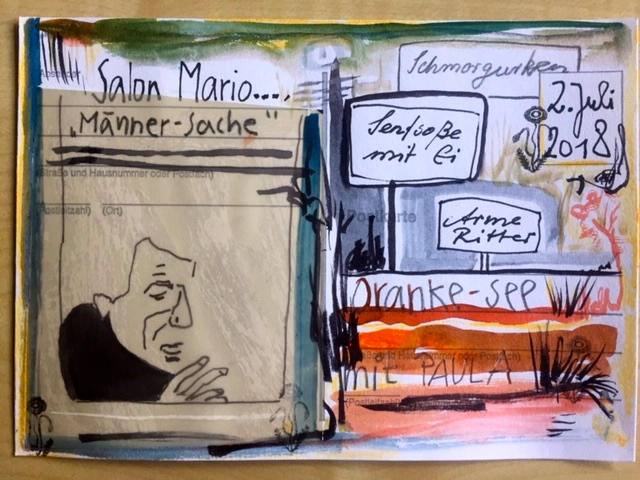 Absender
Salon Mario....,
„Männer-Sache"
(Straße und Hausnummer oder Postfach)
(Postleitzahl) (Ort)
Schmorgurken
2. Juli
2018
Senfsoße
mit Ei
Postkarte
Arme
Ritter
Oranke-See
(Straße und Hausnummer oder Postfach)
mit PAULA
(Postleitzahl)